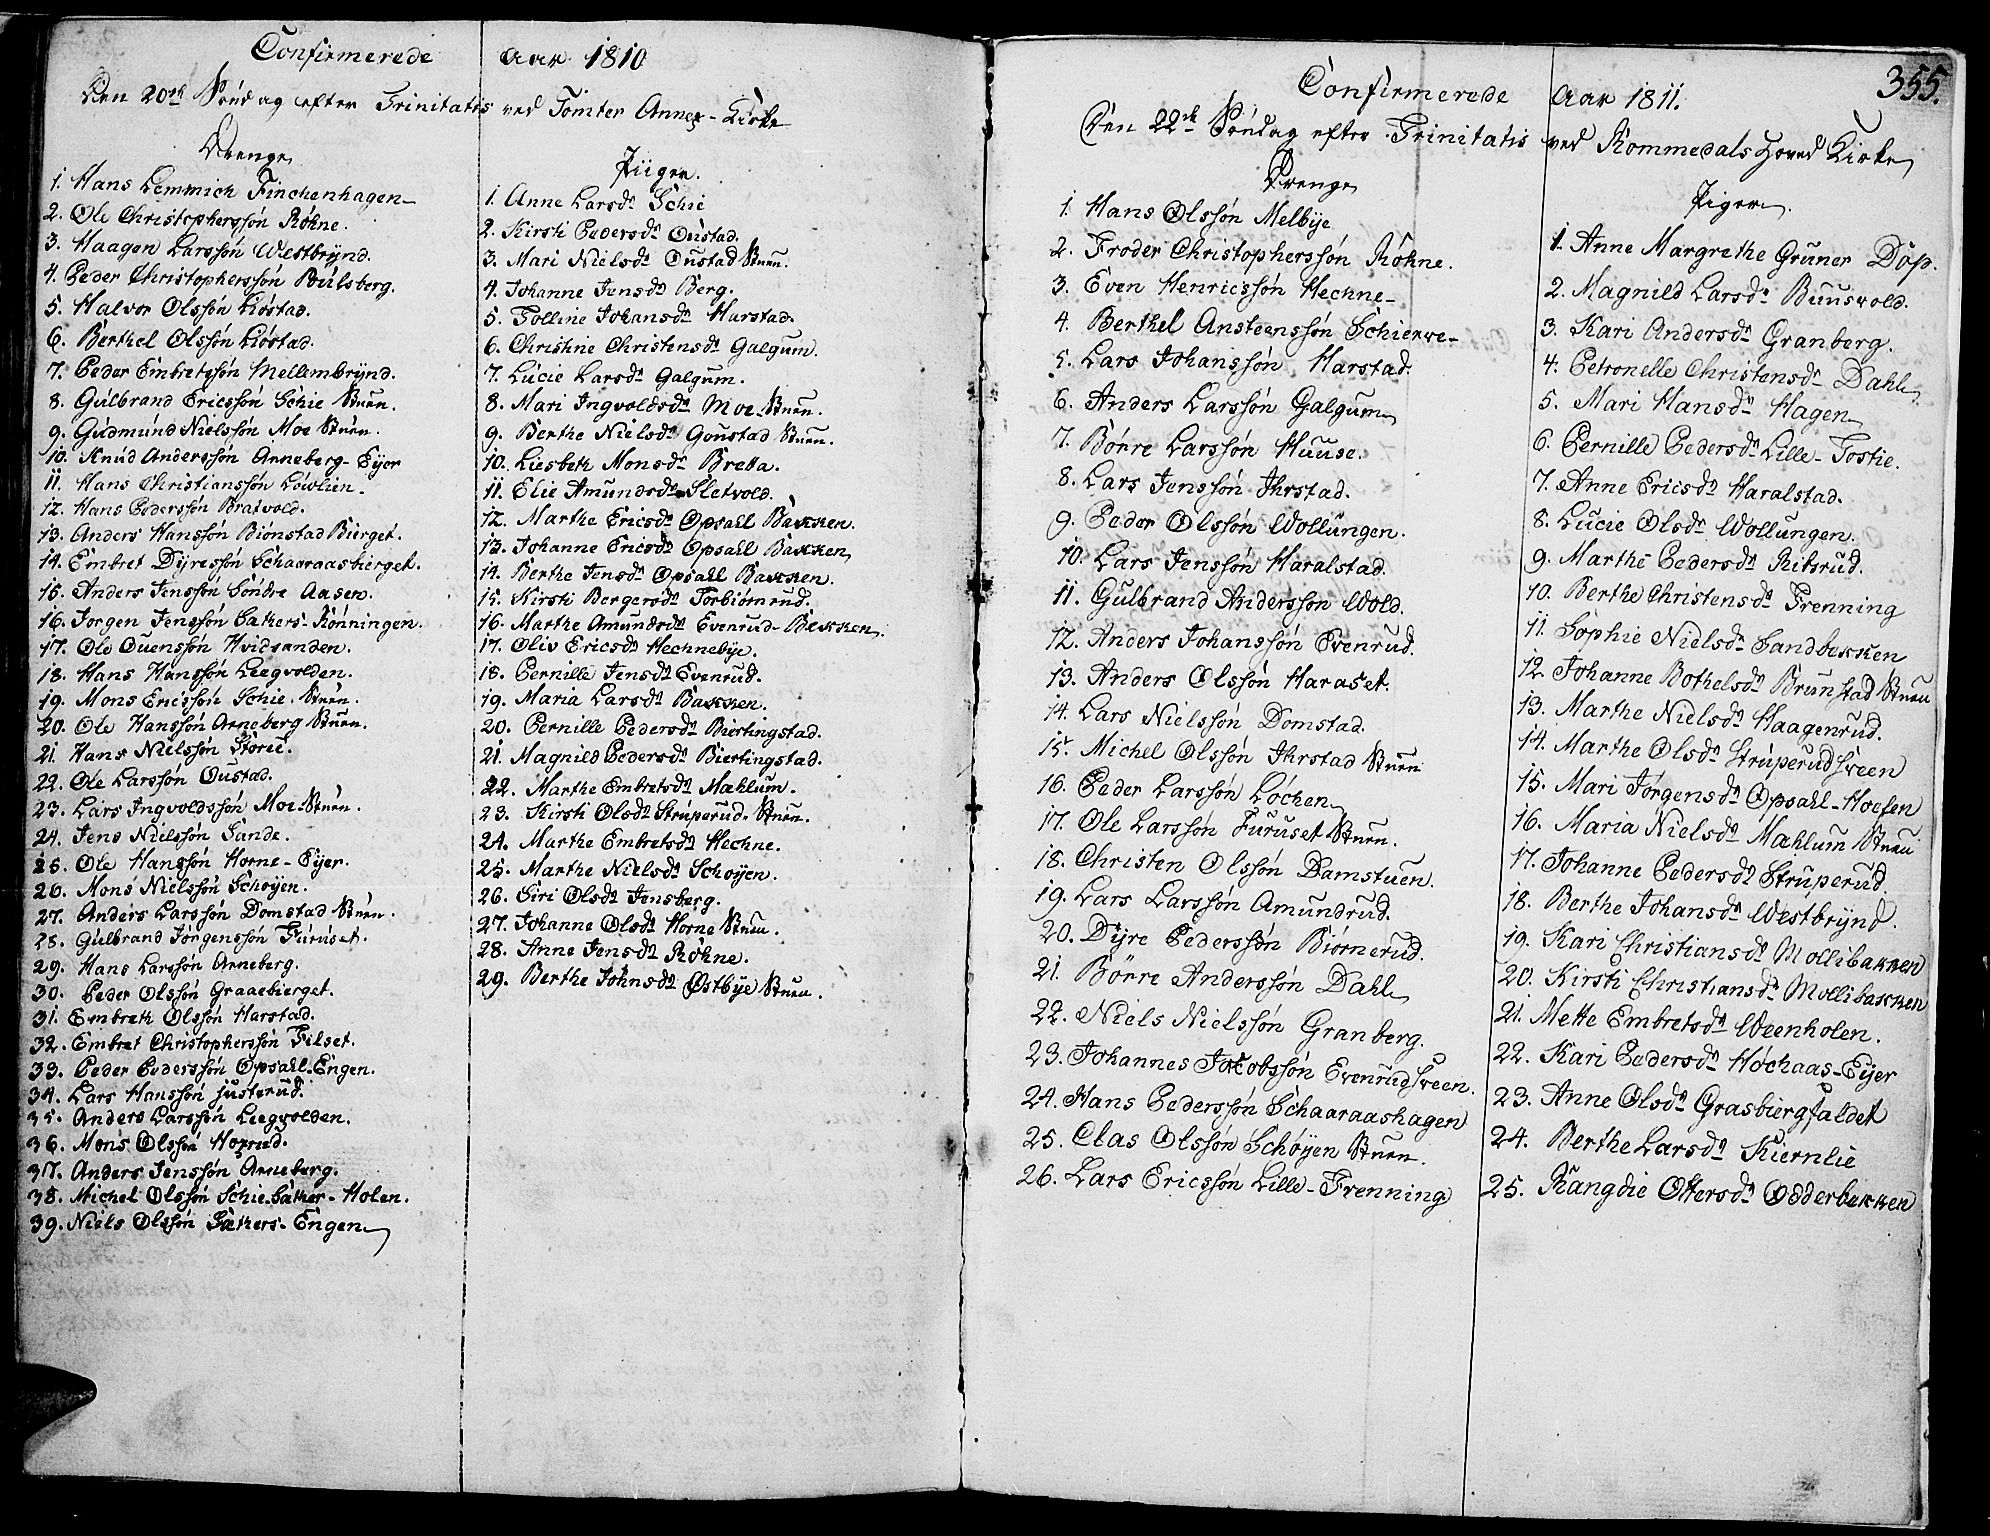 Confirmerede Aar 1810
Den 20de Søndag efter Trinitatis ved Tomter Annex-Kirke
Drenge
1. Hans Lemmich Finchenhagen
2. Ole Christophersøn Røhne.
3. Haagen Larssøn Westbrynd.
4. Peder Christopherssøn Bulsberg.
5. Halvor Olssøn Liøstad.
6. Berthel Olssøn Liøstad.
7. Peder Embretssøn Mellembrynd.
8. Gulbrand Ericssøn Schie Stuen.
9. Gudmund Nielssøn Moe Stuen.
10. Knud Anderssøn Arneberg-Eyer
11. Hans Christianssøn Løvlien.
12. Hans Pederssøn Bratvold.
13. Anders Hanssøn Biønstad Bierget.
14. Embret Dyressøn Schaaraasbierget.
15. Anders Jenssøn Søndre Aasen.
16. Jørgen Jenssøn Sæthers-Rønningen.
17. Ole Ouenssøn Hvidsanden.
18. Hans Hanssøn Leegvolden.
19. Mons Ericssøn Schie Stuen.
20. Ole Hanssøn Arneberg Stuen.
21. Hans Nielssøn Storie.
22. Ole Larssøn Oustad.
23. Lars Ingvoldssøn Moe Stuen.
24. Jens Nielssøn Sande.
25. Ole Hanssøn Horne-Eyer.
26. Mons Nielssøn Schøyen.
27. Anders Larssøn Domstad Stuen.
28. Gulbrand Jørgenssøn Furuset.
29. Hans Larssøn Arneberg.
30. Peder Olssøn Graaebierget.
31. Embreth Olssøn Harstad.
32. Embret Christopherssøn Filset.
33. Peder Pederssøn Opsahl-Engen.
34. Lars Hanssøn Justerud.
35. Anders Larssøn Leegvolden.
36. Mons Olssøn Hoxrud.
37. Anders Jenssøn Arneberg.
38. Michel Olssøn Schie Sæther-Holen.
39. Niels Olssøn Sæthers-Engen
Piiger.
1. Anne Larsdr Schie
2. Kirsti Pedersdr Oustad.
3. Mari Nielsdr Oustad Stuen.
4. Johanne Jensdr Berg.
5. Golline Johansdr Harstad.
6. Christine Christensdr Galgum.
7. Lucie Larsdr Galgum.
8. Mari Ingvoldsdr Moe Stuen.
9. Berthe Nielsdr Goustad Stuen.
10. Liesbeth Monsdr Bretta.
11. Elie Amundsdr Sletvold.
12. Marthe Ericsdr Opsahl Bakken.
13. Johanne Ericsdr Opsahl Bakken
14. Berthe Jensdr Opsahl Bakken.
15. Kirsti Bergersdr Torbiørnrud.
16. Marthe Amundsdr Evenrud-Bekken.
17. Oliv Ericsdr Hechnebye.
18. Pernille Jensdr Evenrud.
19. Maria Larsdr Bakken.
20. Pernille Pedersdr Biertingstad.
21. Magnild Pedersdr Biertingstad.
22. Marthe Embretsdr Mæhlum.
23. Kirsti Olsdr Struperud-Stuen.
24. Marthe Embretsdr Hechne.
25. Marthe Nielsdr Schøyen.
26. Siri Olsdr Jensberg.
27. Johanne Olsdr Horne Stuen.
28. Anne Jensdr Røhne.
29. Berthe Johnsdr Østbye Stuen.
355.
Confirmerede Aar 1811.
Den 22de Søndag efter Trinitatis ved Rommedals Hoved Kirke
Drenge
1. Hans Olssøn Melbye
2. Froder Christopherssøn Røhne.
3. Even Henricssøn Hechne
4. Berthel Ansteenssøn Schierve
5. Lars Johanssøn Harstad.
6. Anders Larssøn Galgum
7. Børre Larssøn Huuse.
8. Lars Jenssøn Ihrstad.
9. Peder Olssøn Wollungen.
10. Lars Jenssøn Haralstad.
11. Gulbrand Anderssøn Wold.
12. Anders Johanssøn Evenrud.
13. Anders Olssøn Haraset.
14. Lars Nielssøn Domstad.
15. Michel Olssøn Ihrstad Stuen
16. Peder Larssøn Løchen
17. Ole Larssøn Furuset Stuen.
18. Christen Olssøn Damstuen.
19. Lars Larssøn Amundrud.
20. Dyre Pederssøn Biørnerud.
21. Børre Anderssøn Dahl
22. Niels Nielssøn Granberg.
23. Johannes Jacobssøn Evenrudsveen.
24. Hans Pederssøn Schaaraashagen
25. Clas Olssøn Schøyen Stuen.
26. Lars Ericssøn Lille-Frenning
Piger.
1. Anne Margrethe Grüner Døp.
2. Magnild Larsdr Buusvold.
3. Kari Andersdr Granberg.
4. Petronelle Christensdr Dahl
5. Mari Hansdr Hagen
6. Pernille Pedersdr Lille-Tostie.
7. Anne Ericsdr Haralstad.
8. Lucie Olsdr Wollungen.
9. Marthe Pedersdr Ritsrud.
10. Berthe Christensdr Frenning
11. Sophie Nielsdr Sandbekken
12. Johanne Bothelsdr Brunstad Stuen
13. Marthe Nielsdr Haagenrud.
14. Marthe Olsdr Struperudsveen
15. Mari Jørgensdr Opsahl-Hoefen
16. Maria Nielsdr Mæhlum Stuen
17. Johanne Pedersdr Struperud
18. Berthe Johansdr Westbrynd.
19. Kari Christiansdr Mollibakken
20. Kirsti Christiansdr Mollibakken
21. Mette Embretsdr Weenholen.
22. Kari Pedersdr Høchaas-Eyer
23. Anne Olsdr Grasbiergfaldet
24. Berthe Larsdr Kiernlie
25. Rangdie Ottersdr Odderbekken